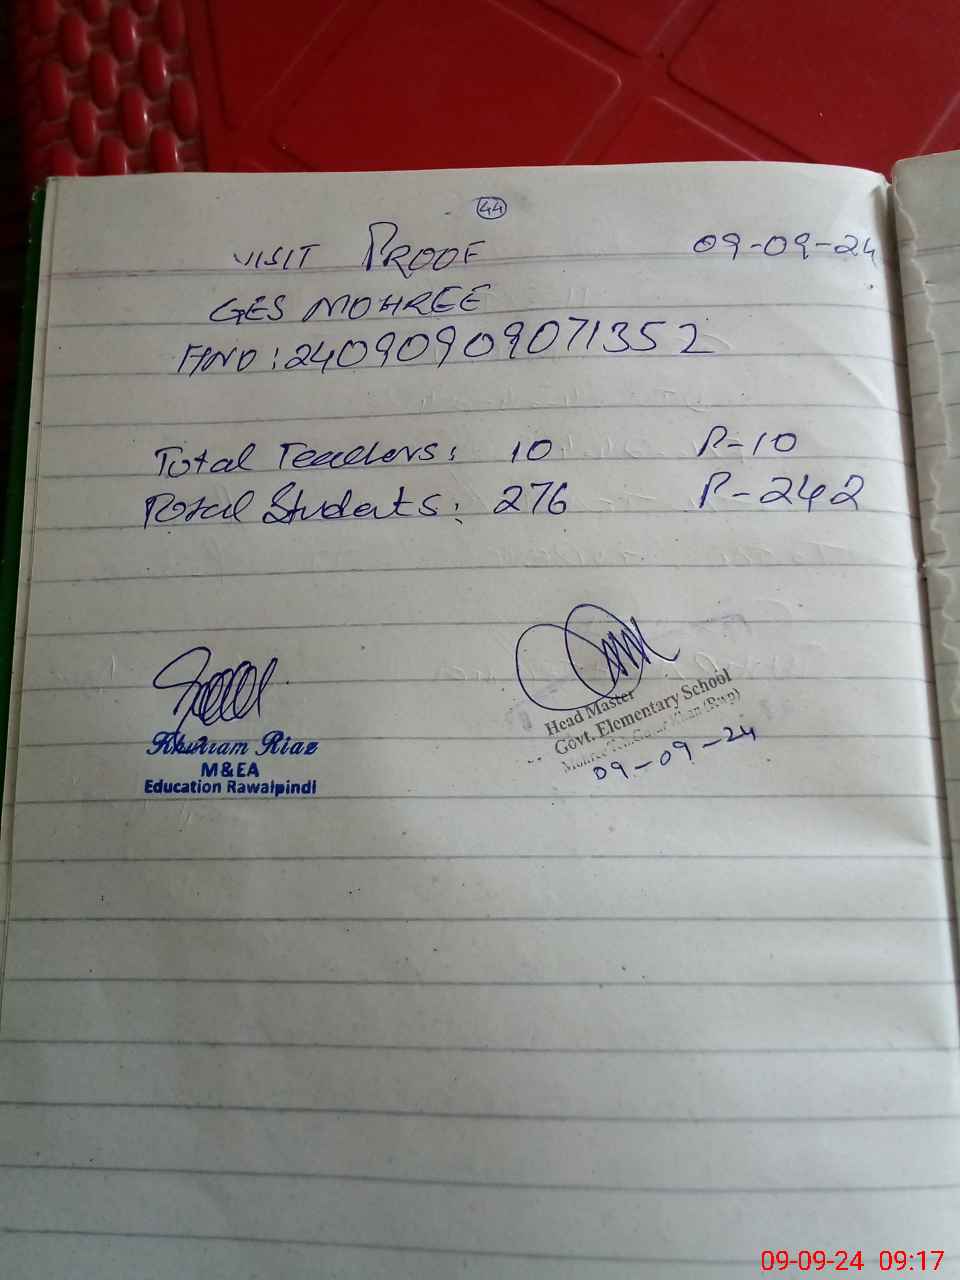 44
VISIT PROOF 09-09-24
GES MOHREE
A/NO: 24090909071352
Total Teachers: 10 P-10
Total Students: 276 P-242
Khurram Riaz
M&EA
Education Rawalpindi
Head Master
Govt. Elementary School
Mohree Teh. Gujar Khan (Rwp)
09-09-24
09-09-24 09:17